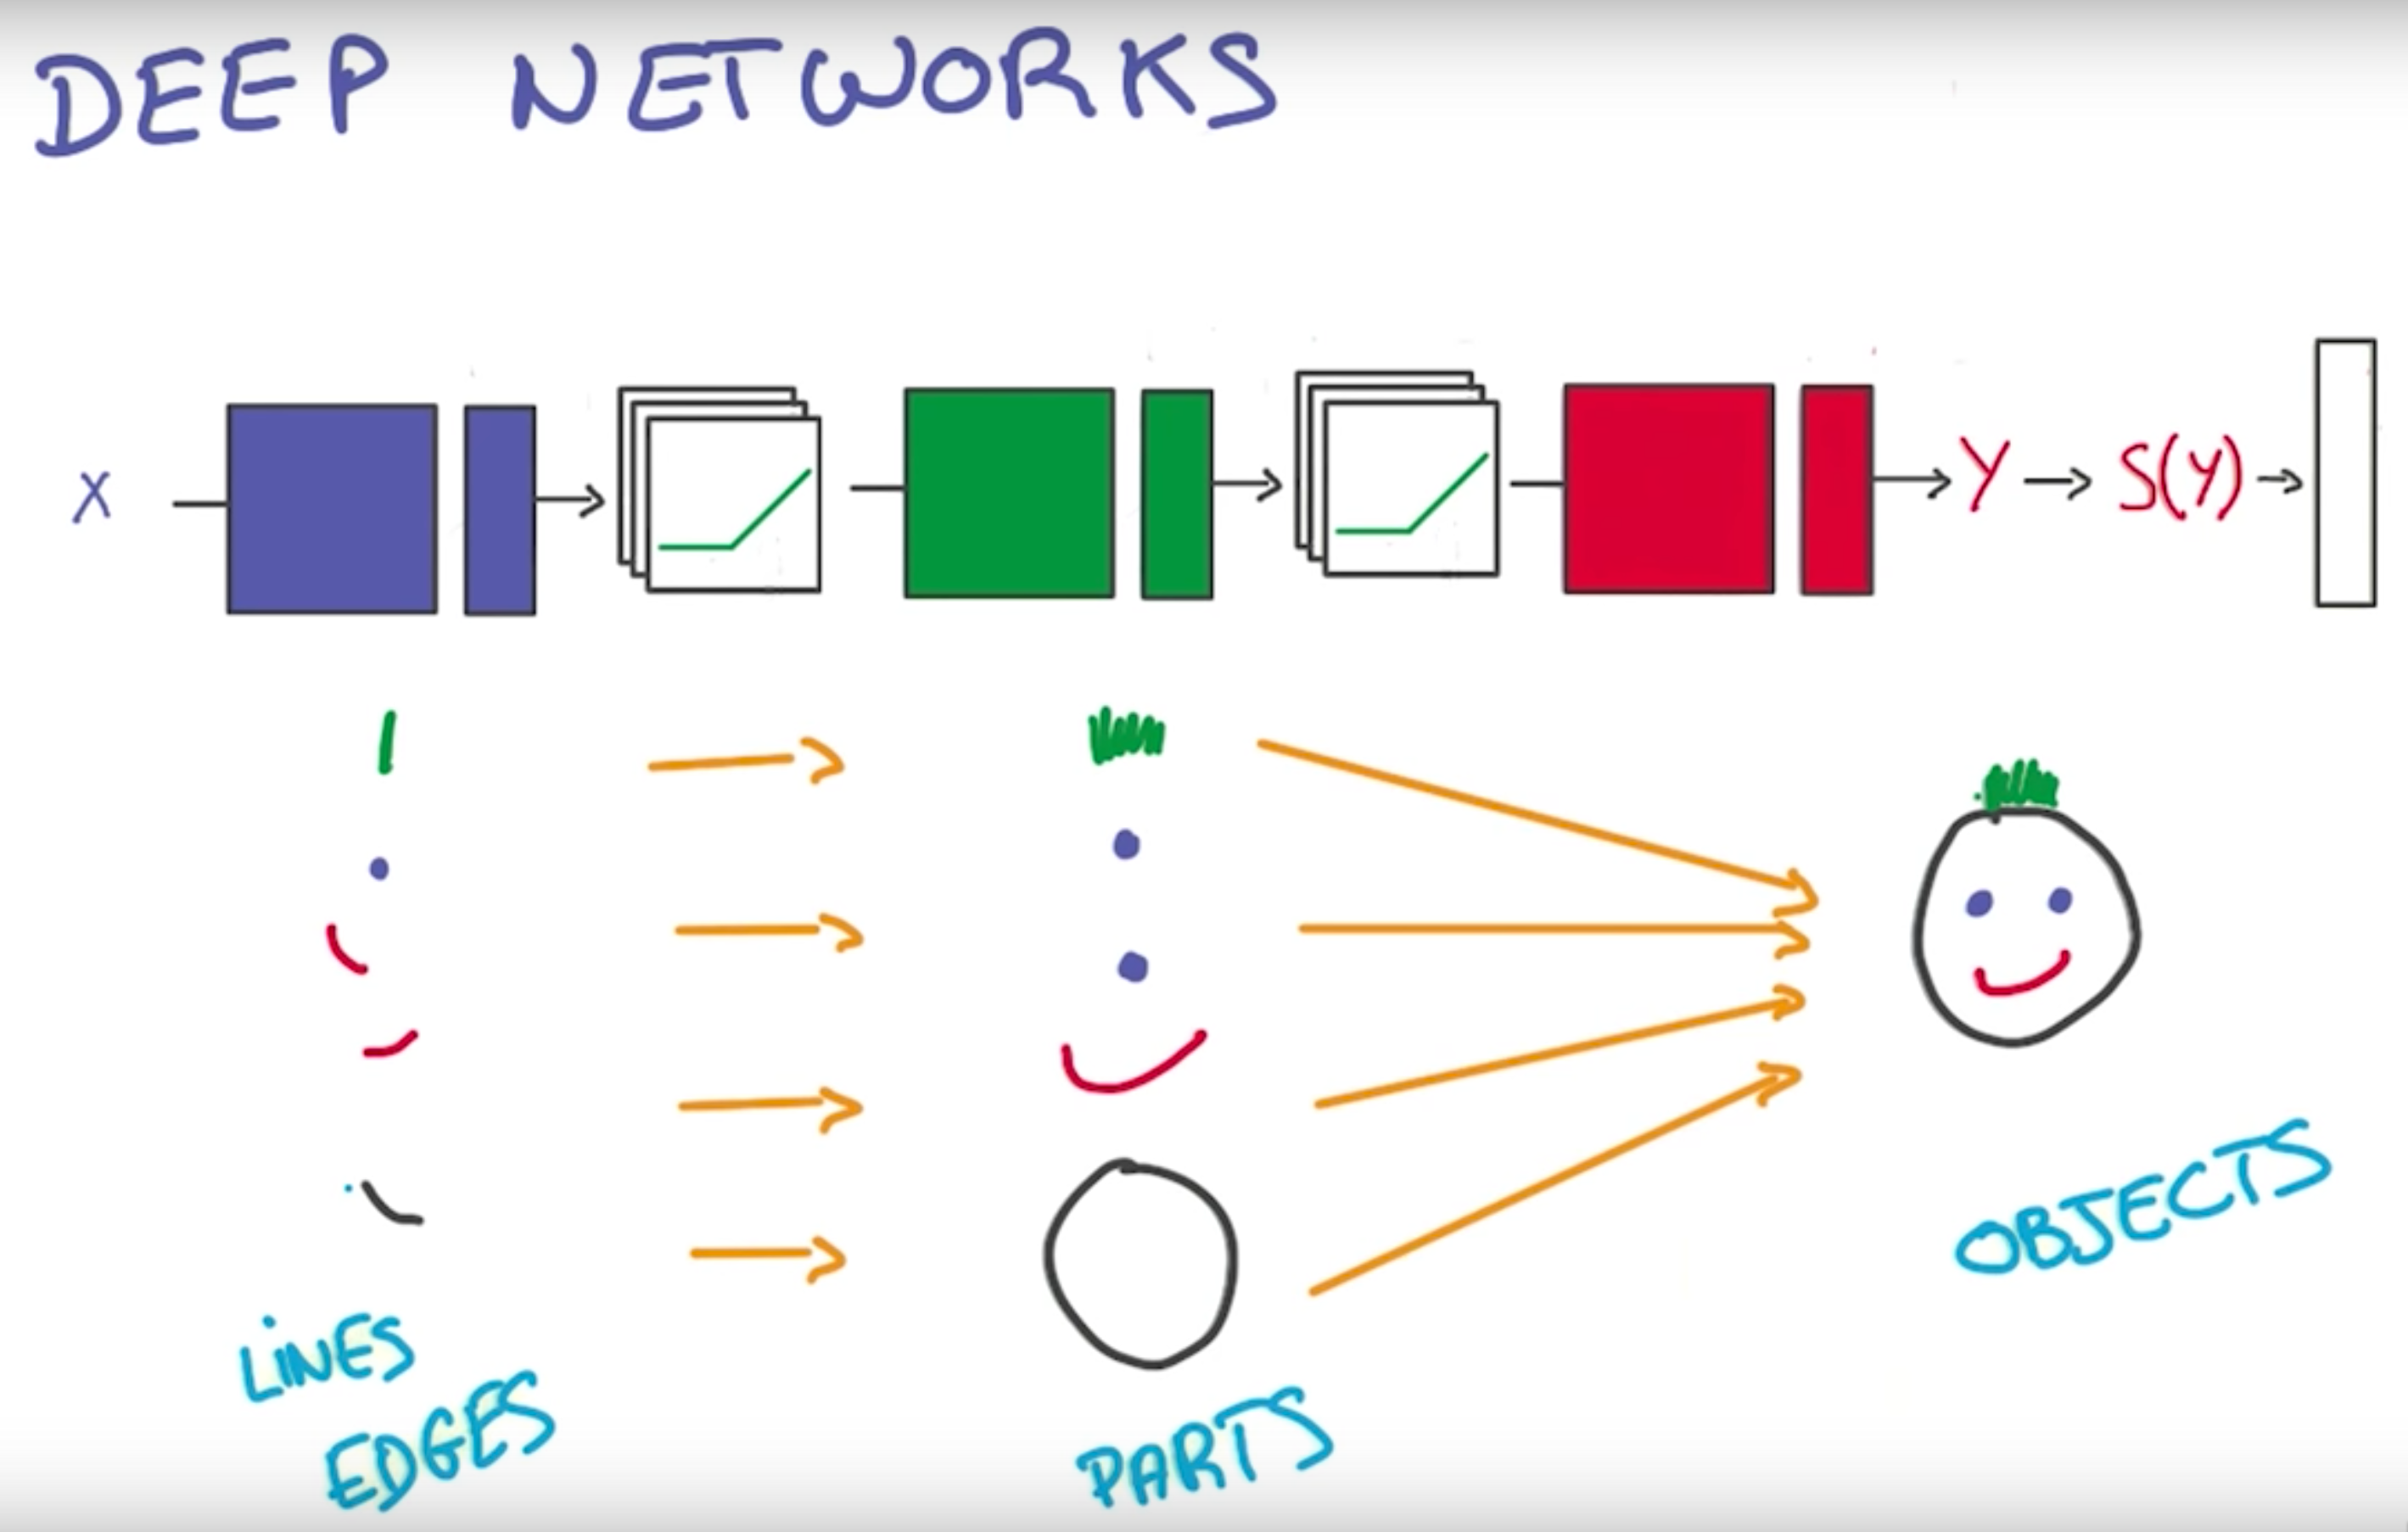 DEEP NETWORKS
X
Y
S(Y)
LINES
EDGES
PARTS
OBJECTS